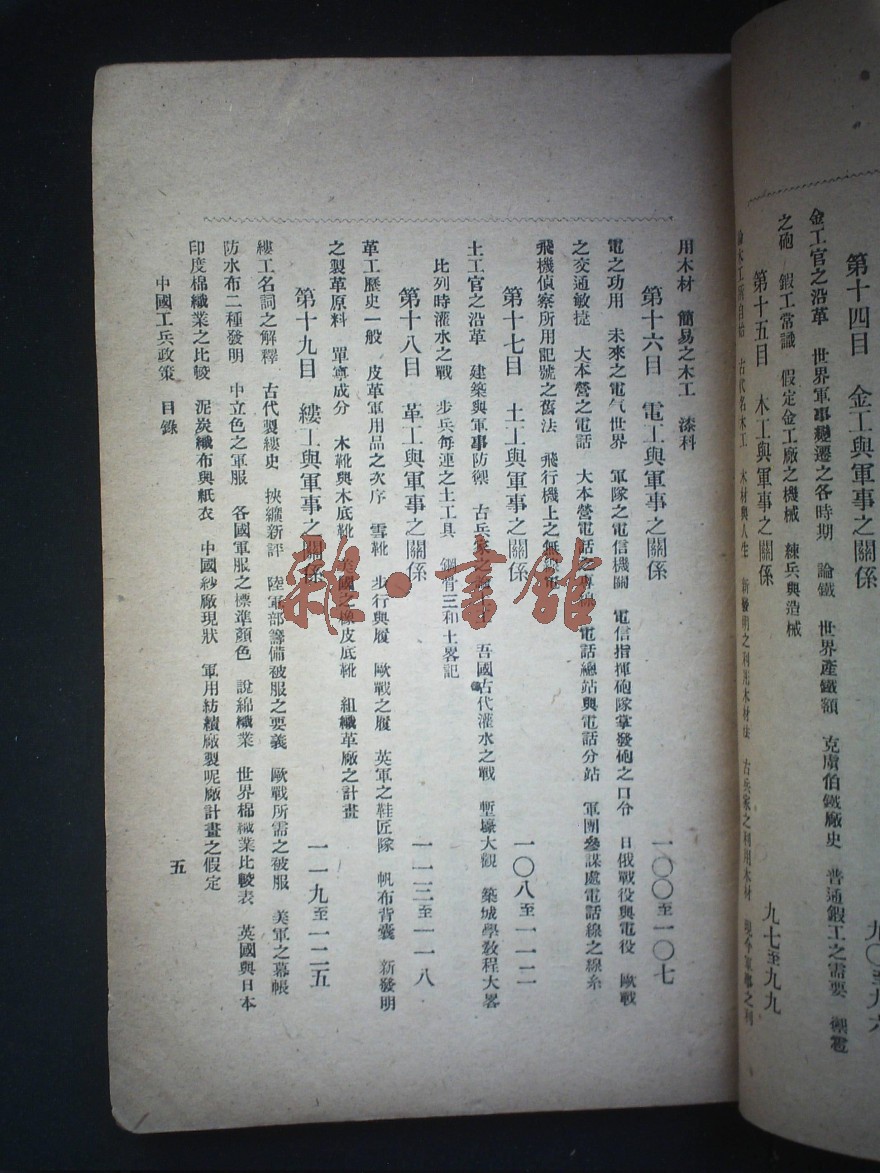 第十四目　金工與軍事之關係
金工官之沿革　世界軍事變遷之各時期　論鐵　世界產鐵額　克虜伯鐵廠史　普通鍜工之需要　禦雹
之砲　鍜工常識　假定金工廠之機械　練兵與造械
第十五目　木工與軍事之關係　九七至九九
古代名木工　木材與人生　新發明之利用木材法　古兵家之利用木材　現今軍事之利
用木材　簡易之木工　漆科
第十六目　電工與軍事之關係　一〇〇至一〇七
電之功用　未來之電气世界　軍隊之電信機關　電信指揮砲隊掌發砲之口令　日俄戰役與電役　歐戰
之交通敏捷　大本營之電話　大本營電話之專線　電話總站與電話分站　軍團參謀處電話線之線系
飛機偵察所用記號之舊法　飛行機上之無線電
第十七目　土工與軍事之關係　一〇八至一一二
土工官之沿革　建築與軍事防禦　吾國古代灌水之戰　塹壕大觀　築城學教程大畧
比列時灌水之戰　步兵每連之土工具　鋼骨三和土畧記
第十八目　革工與軍事之關係　一一三至一一八
革工歷史一般　皮革軍用品之次序　雪靴　步行與履　歐戰之履　英軍之鞋匠隊　帆布背囊　新發明
之製革原料　單寧成分　木靴與木底靴　美國之橡皮底靴　組織革廠之計畫
第十九目　縷工與軍事之關係　一一九至一二五
縷工名詞之解釋　古代製縷史　挾纊新評　陸軍部籌備被服之要義　歐戰所需之被服　美軍之幕帳
防水布二種發明　中立色之軍服　各國軍服之標準顏色　說綿織業　世界棉織業比較表　英國與日本
印度棉織業之比較　泥炭織布與紙衣　中國紗廠現狀　軍用紡績廠製呢廠計畫之假定
中國工兵政策　目錄　五
雜·書館